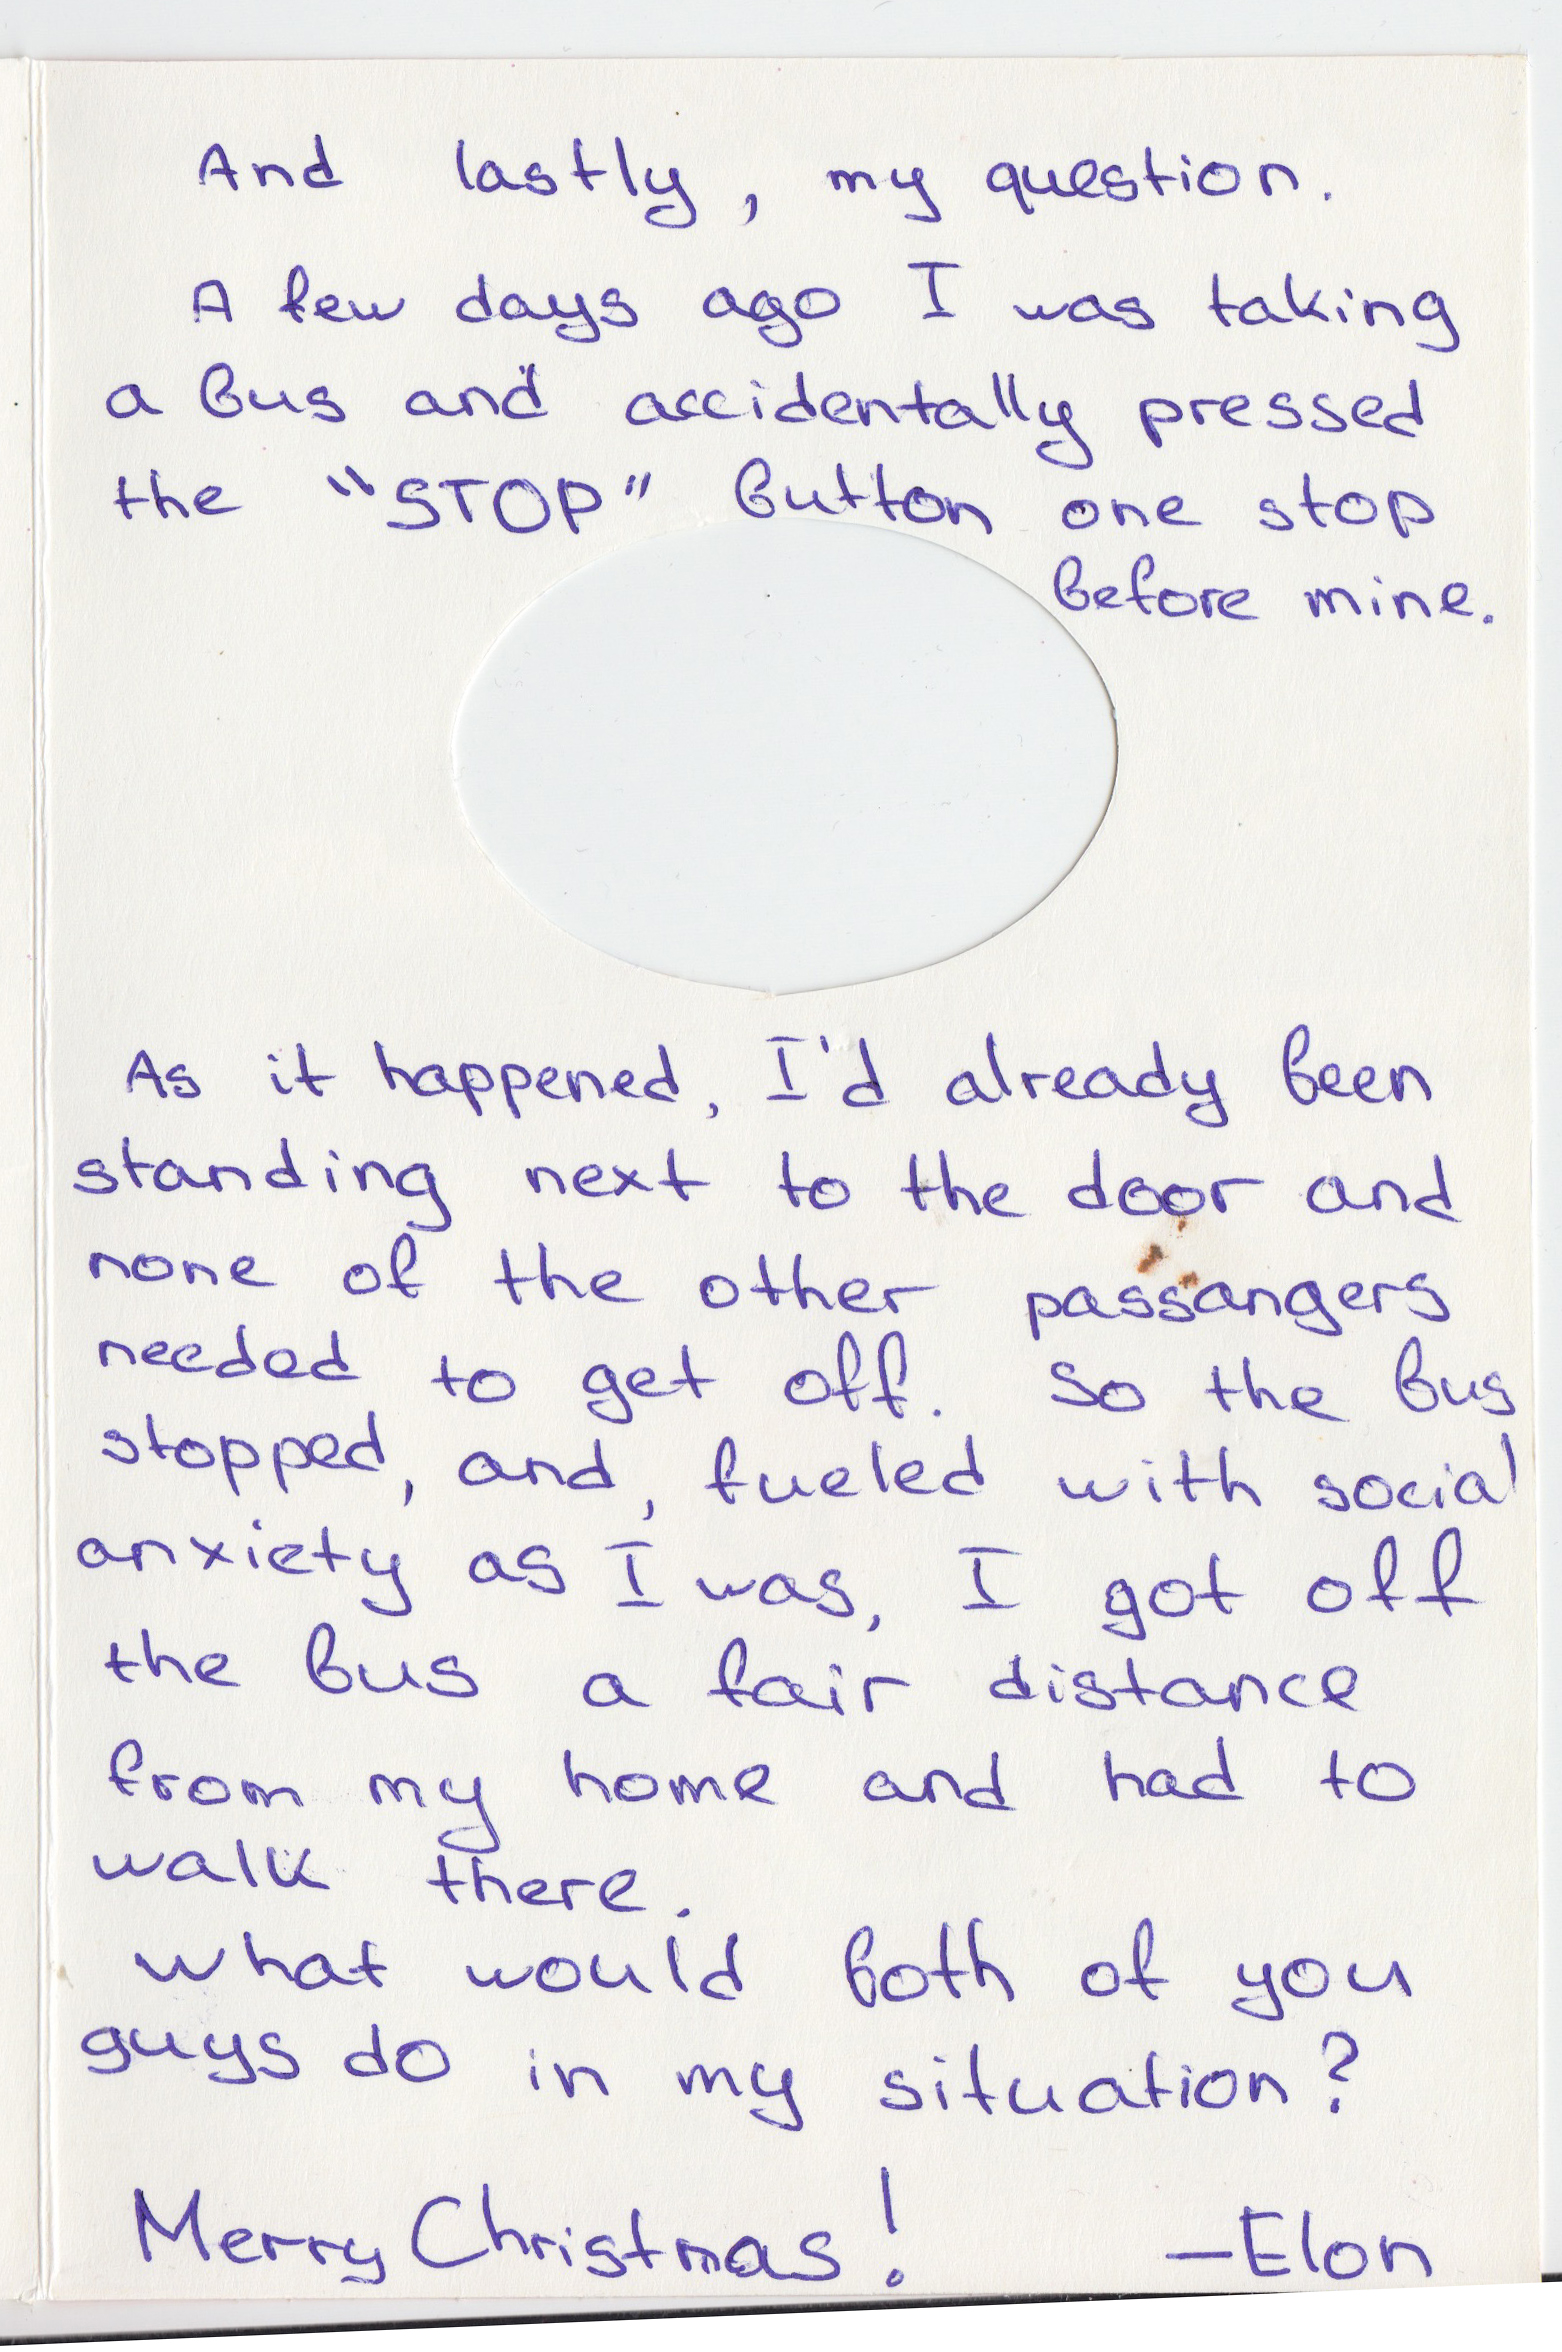 And lastly, my question.
A few days ago I was taking
a bus and accidentally pressed
the "STOP" button one stop
before mine.
As it happened, I'd already been
standing next to the door and
none of the other passangers
needed to get off. So the bus
stopped, and, fueled with social
anxiety as I was, I got off
the bus a fair distance
from my home and had to
walk there.
What would both of you
guys do in my situation?
Merry Christmas! —Elon